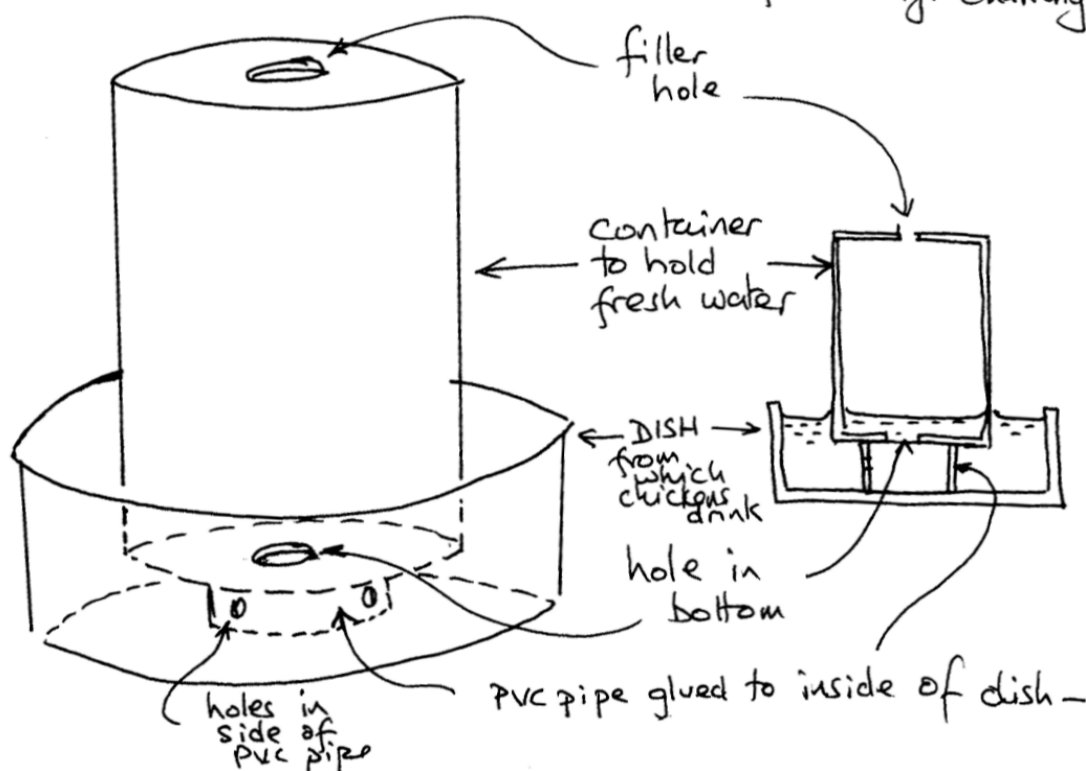 filler
hole
container
to hold
fresh water
DISH
from
which
chickens
drink
hole in
bottom
PVC pipe glued to inside of dish -
holes in
side of
PVC pipe